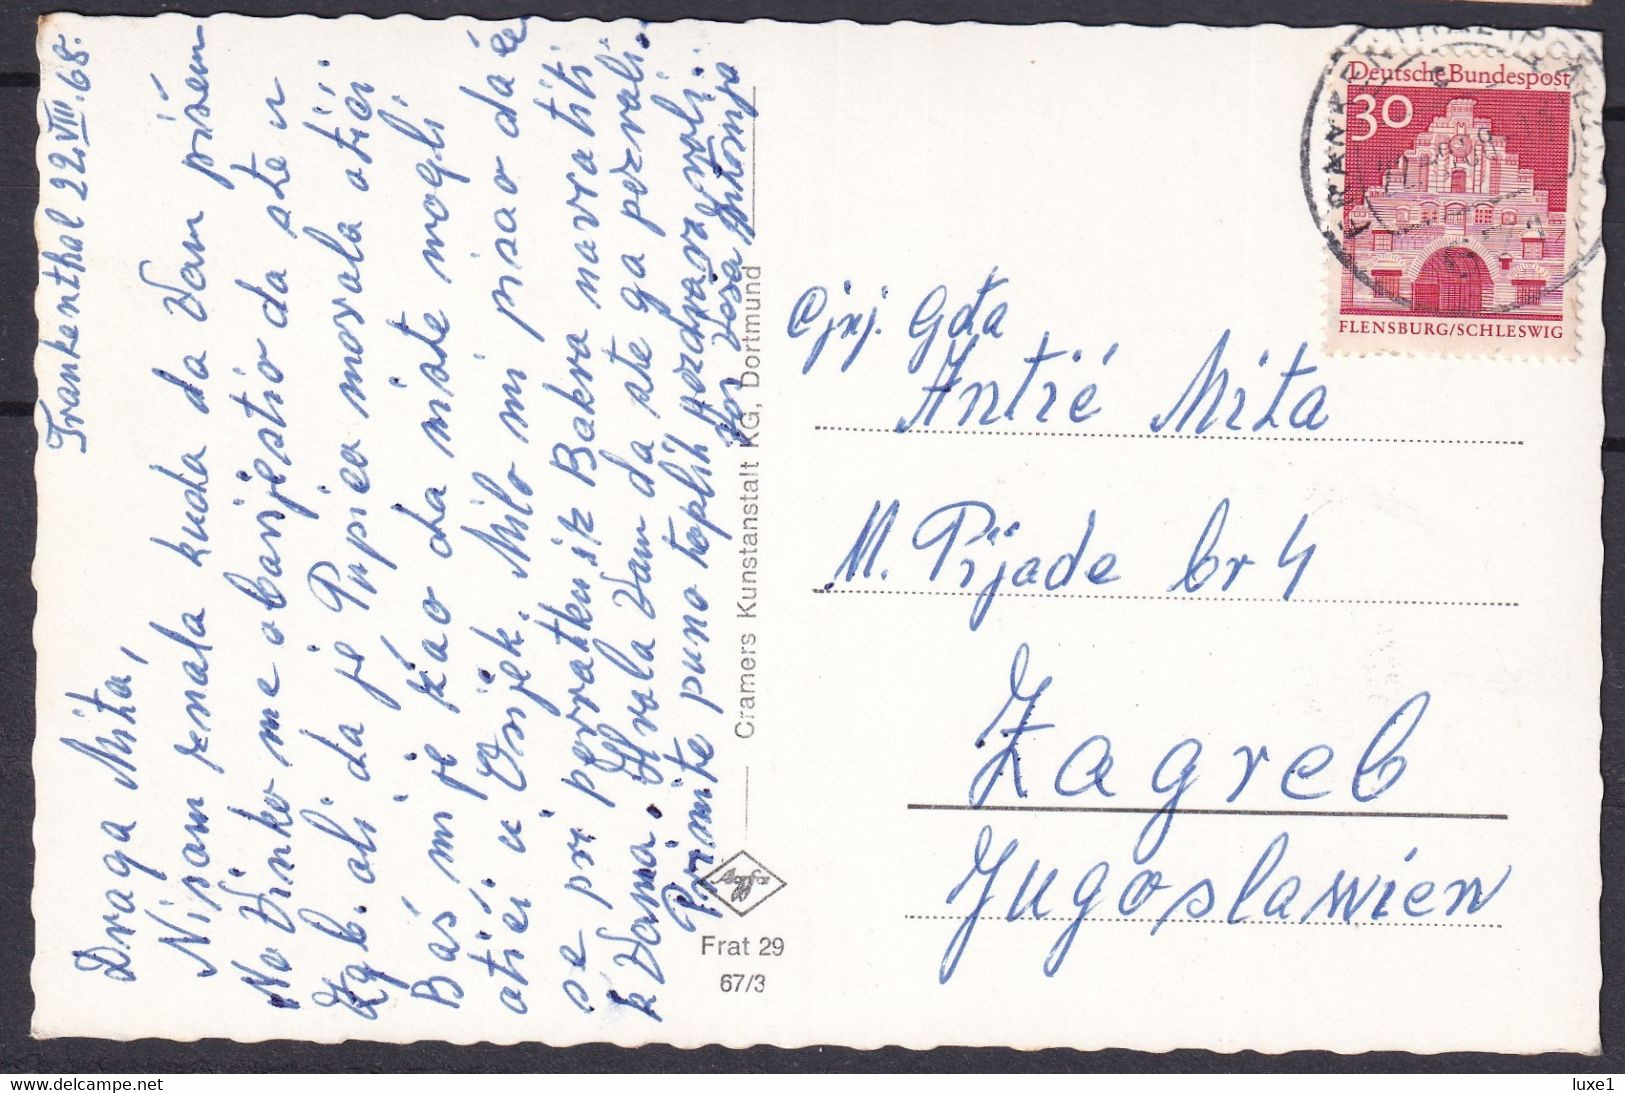 Frankenthal 22.VIII.68.
Draga Mita,
Nisam znala kuda da Vam pišem
No Dinko me obavijestio da ste u
Zgb. ali da je Pupica morala otići
Baš mi je žao da niste mogli
otići u Osijek. Milo mi pisao da će
se pri povratku iz Bakra navratiti
k Vama. Hvala Vam da ste ga pozvali.
Primite puno toplih pozdrava voli
Vas Vaša Antonija
Cramers Kunstanstalt KG, Dortmund
Agfa
Frat 29
67/3
Deutsche Bundespost
30
FLENSBURG/SCHLESWIG
FRANKENTHAL (PFALZ)
Cjnj. Gđa
Antić Mita
M. Pijade br 4
Zagreb
Jugoslawien
luxe1
https://www.delcampe.net